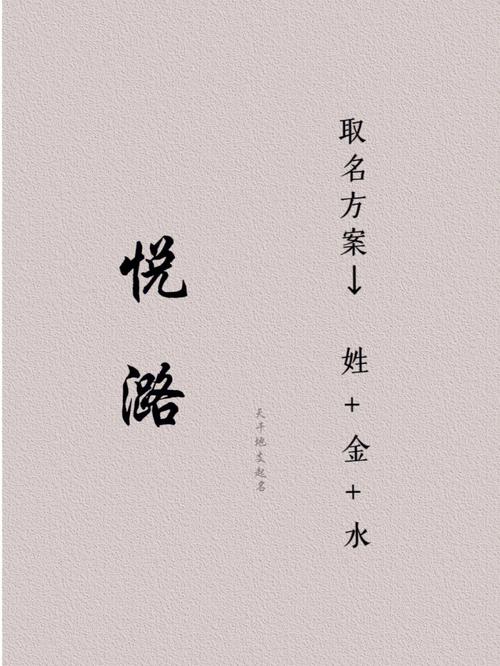 取名方案↓ 姓+金+水
天干地支起名
悦潞